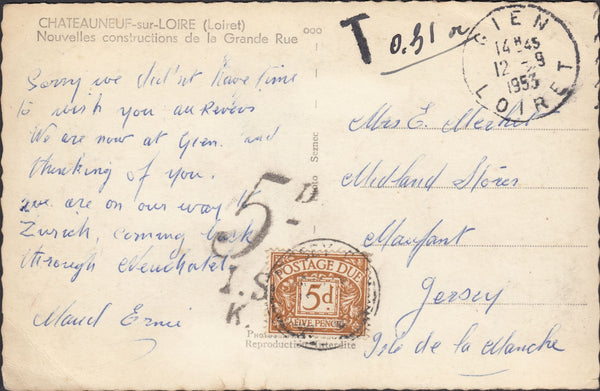 CHATEAUNEUF-sur-LOIRE (Loiret)
Nouvelles constructions de la Grande Rue
ooo
T 0.31
GIEN
14H45
12 - 9
1953
LOIRET
Sorry we did'nt have time
to wish you au Revoir
We are now at Gien. and
thinking of you.
we are on our way to
Zurich, coming back
through Neuchatel
Maud Ernie
Mrs E.
Midland Stores
Maufant
Jersey
Isle de la Manche
5D
I.S.
K.
POSTAGE DUE
5d
FIVE PENCE
Photo Seznec
Reproduction Interdite